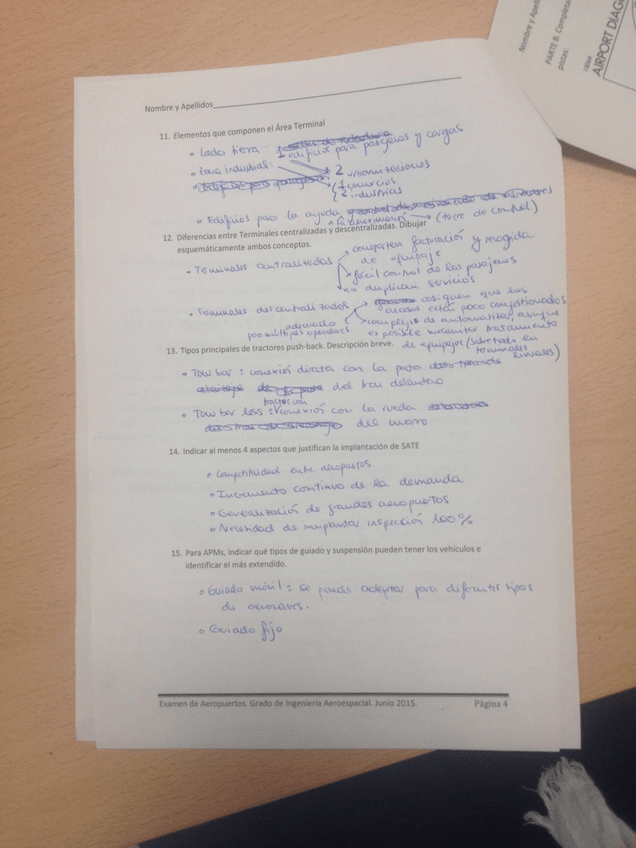 Nombre y Apell
PARTE B. Completa
patas:
AIRPORT DIAG
Nombre y Apellidos
11. Elementos que componen el Área Terminal
• Lado tierra: 1 edificio para pasajeros y cargas
• zona industrial: 2 urbanizaciones
1 comercios
2 industrias
• Edificios para la ayuda
(torre de control)
12. Diferencias entre Terminales centralizadas y descentralizadas. Dibujar
esquemáticamente ambos conceptos.
• Terminales centralizadas
comparten facturación y recogida
de equipaje
fácil control de los pasajeros
no duplican servicios
• Terminales descentralizados
adecuado
para múltiples operadores
aseguren que los
accesos estén poco congestionados
complejo de automatizar, aunque
es posible tratamiento
de equipajes (sobretodo en
terminales
lineales)
13. Tipos principales de tractores push-back. Descripción breve.
• Tow bar: conexión directa con la pata
del tren delantero
• Tow bar less: tractor con conexión con la rueda
del morro
14. Indicar al menos 4 aspectos que justifican la implantación de SATE
• Competitividad entre aeropuertos
• Incremento continuo de la demanda
• Generalización de grandes aeropuertos
• Necesidad de implantar inspección 100%
15. Para APMs, indicar qué tipos de guiado y suspensión pueden tener los vehículos e
identificar el más extendido.
• Guiado móvil: se puede adaptar para diferentes tipos
de aeronaves.
• Guiado fijo
Examen de Aeropuertos. Grado de Ingeniería Aeroespacial. Junio 2015. Página 4